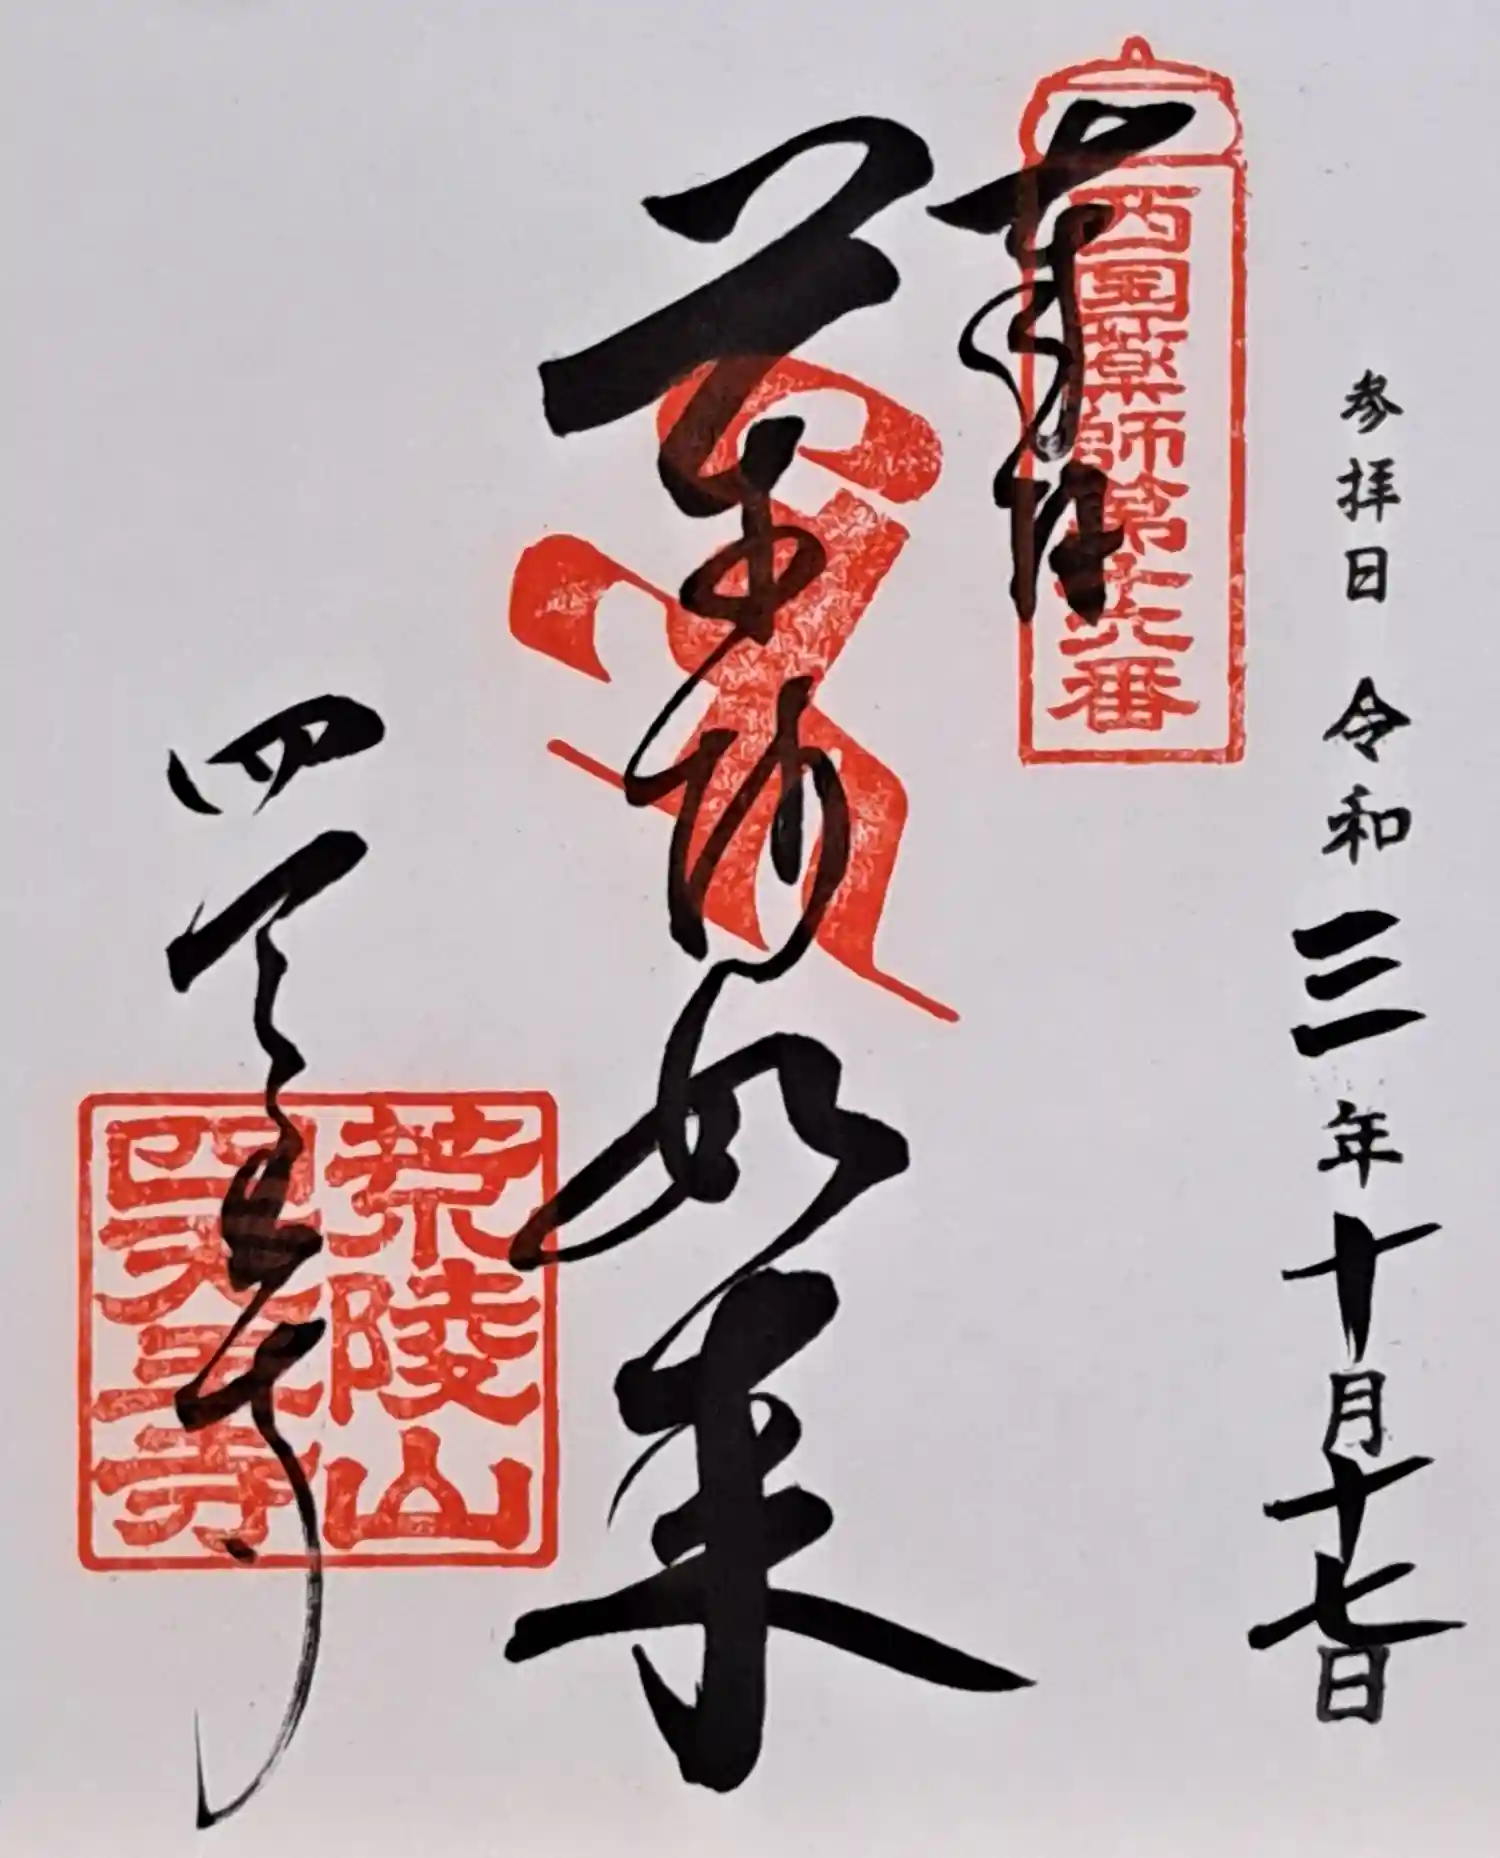 参拝日 令和三年十月十七日
奉拝
西国薬師第十六番
薬師如来
四天王寺
荒陵山
四天王寺